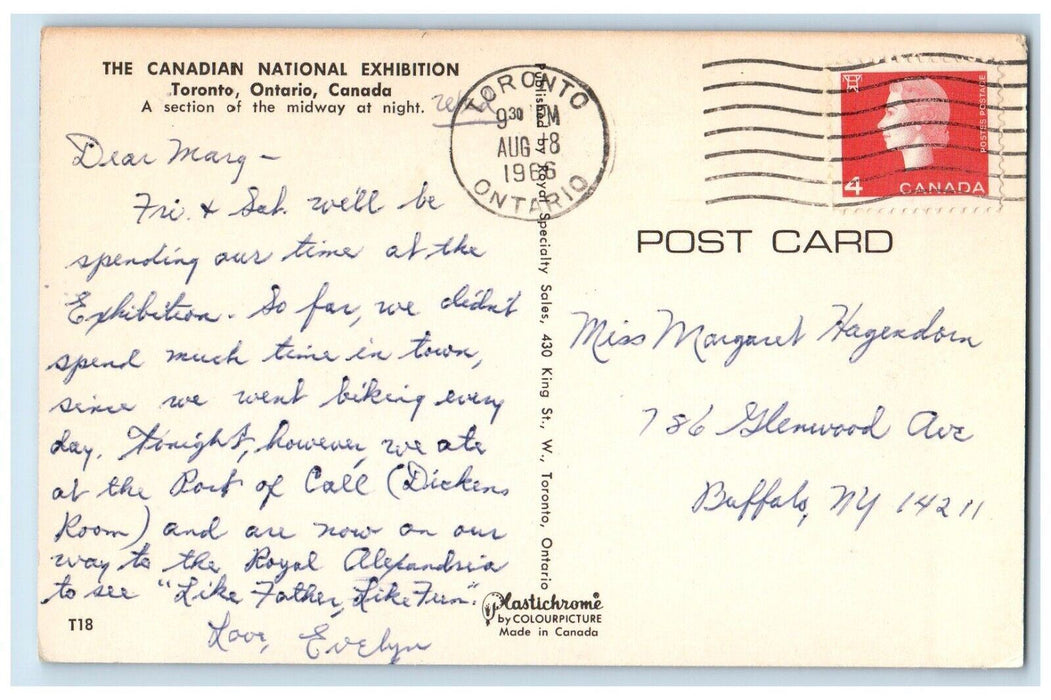 THE CANADIAN NATIONAL EXHIBITION
Toronto, Ontario, Canada
A section of the midway at night.
Dear Marg -
Fri. & Sat. we'll be
spending our time at the
Exhibition. So far, we didn't
spend much time in town,
since we went biking every
day. Tonight, however, we ate
at the Port of Call (Dickens
Room) and are now on our
way to the Royal Alexandria
to see "Like Father, Like Fun".
Love, Evelyn
T18
Published by Royal Specialty Sales, 430 King St., W., Toronto, Ontario
Plastichrome
by COLOURPICTURE
Made in Canada
TORONTO
9 30 PM
AUG 8
1966
ONTARIO
POSTES POSTAGE
4 CANADA
POST CARD
Miss Margaret Hagendorn
786 Glenwood Ave
Buffalo, NY 14211